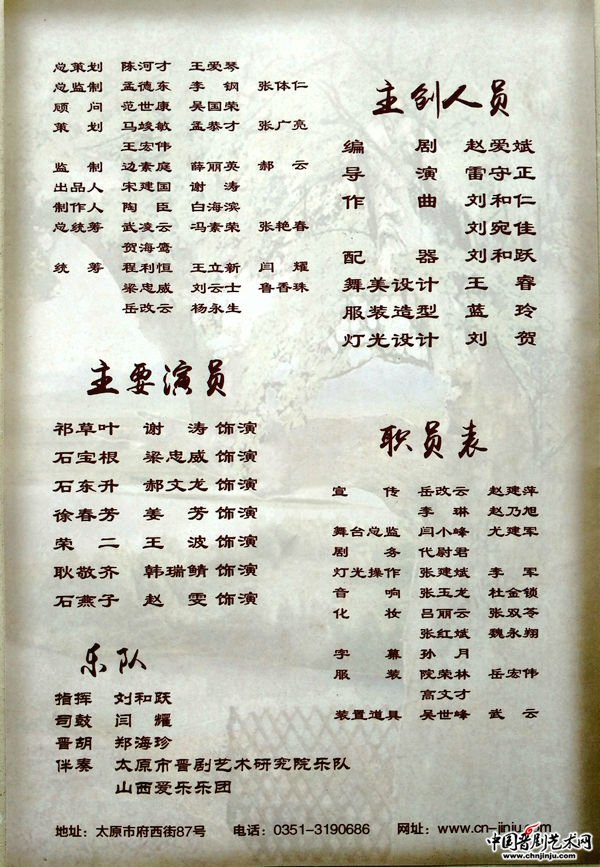 总策划 陈河才 王爱琴
总监制 孟德东 李钢 张体仁
顾问 范世康 吴国荣
策划 马竣敏 孟恭才 张广亮
王宏伟
监制 边素庭 薛丽英 郝云
出品人 宋建国 谢涛
制作人 陶臣 白海滨
总统筹 武凌云 冯素荣 张艳春
贺海鸾
统筹 程利恒 王立新 闫耀
梁忠威 刘云士 鲁香珠
岳改云 杨永生
主要演员
祁草叶 谢涛 饰演
石宝根 梁忠威 饰演
石东升 郝文龙 饰演
徐春芳 姜芳 饰演
荣二 王波 饰演
耿敬齐 韩瑞鲭 饰演
石燕子 赵雯 饰演
乐队
指挥 刘和跃
司鼓 闫耀
晋胡 郑海珍
伴奏 太原市晋剧艺术研究院乐队
山西爱乐乐团
主创人员
编剧 赵爱斌
导演 雷守正
作曲 刘和仁
刘宛佳
配器 刘和跃
舞美设计 王睿
服装造型 蓝玲
灯光设计 刘贺
职员表
宣传 岳改云 赵建萍
李琳 赵乃旭
舞台总监 闫小峰 尤建军
剧务 代尉君
灯光操作 张建斌 李军
音响 张玉龙 杜金锁
化妆 吕丽云 张双苓
张红斌 魏永翔
字幕 孙月
服装 院荣林 岳宏伟
高文才
装置道具 吴世峰 武云
地址：太原市府西街87号 电话：0351-3190686 网址：www.cn-jinju.com
中国晋剧艺术网
www.chnjinju.com